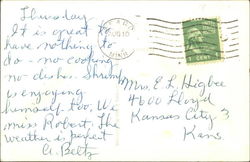 Thursday
It is great to
have nothing to
do - no cooking
no dishes. Shrimp
is enjoying
himself too. We
miss Robert. The
weather is perfect
A. Beltz
Mrs. E. L. Higbee
4600 Lloyd
Kansas City 3
Kans
MINN
1 CENT